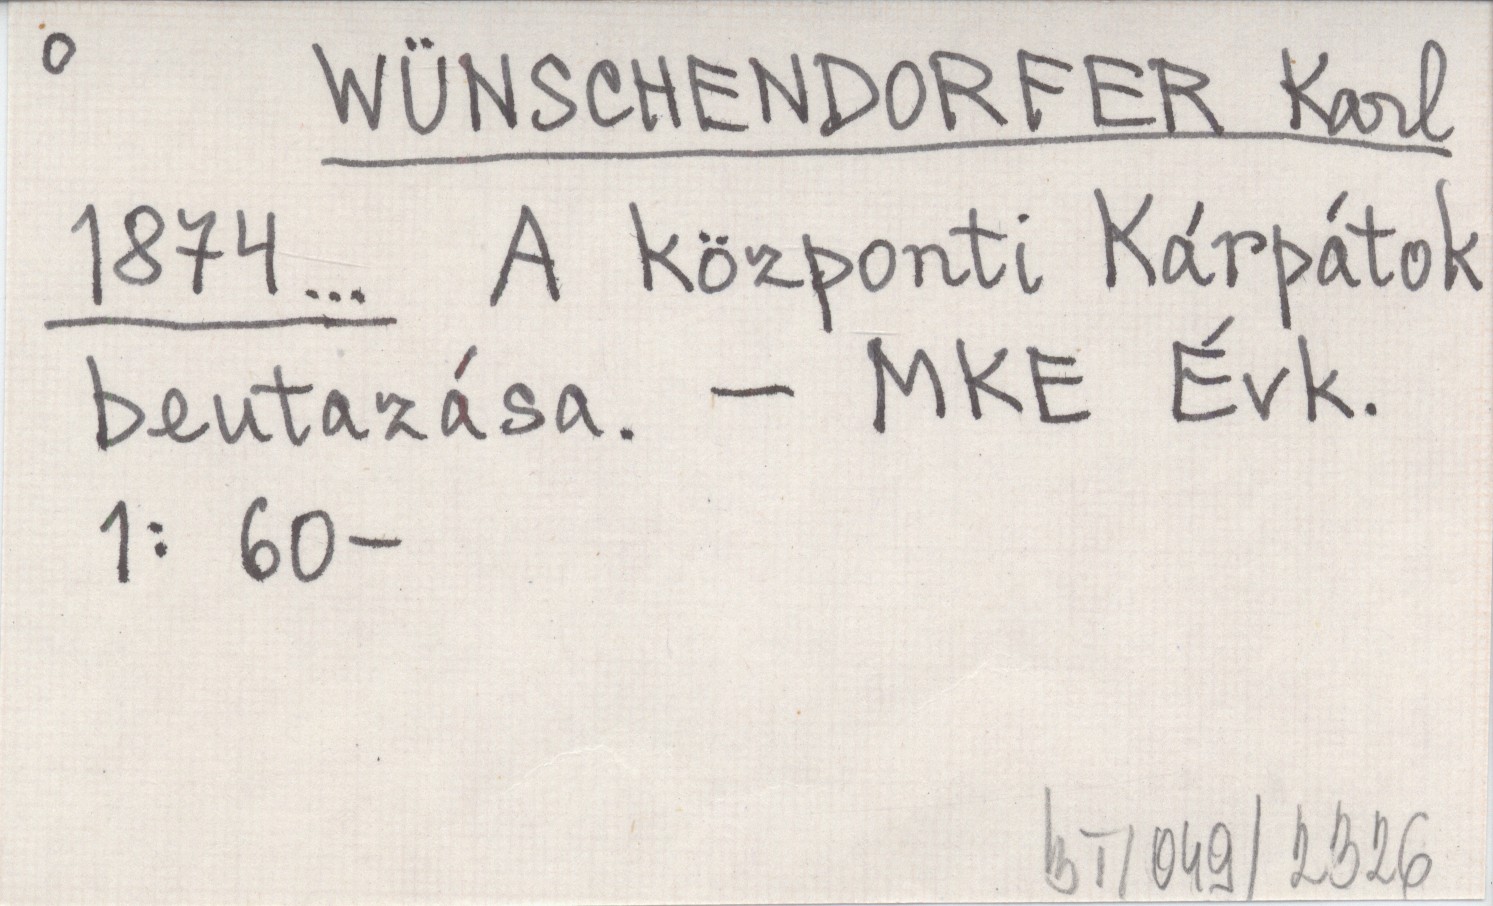 o WÜNSCHENDORFER Karl
1874... A központi Kárpátok
beutazása. — MKE Évk.
1: 60—
BT/049/2326